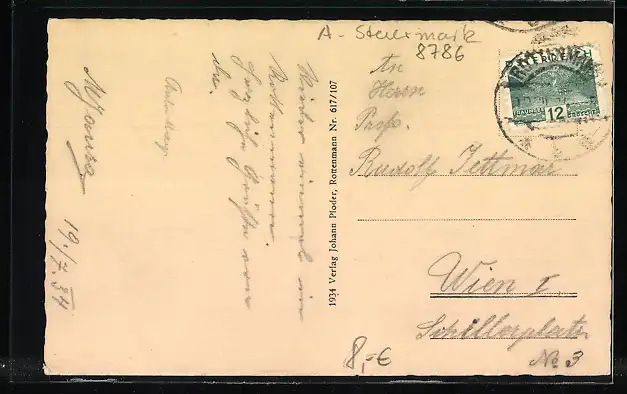 A - Steiermark
8786
ROTTENMANN
ÖSTERREICH
12 GROSCHEN
An
Herrn
Prof.
Rudolf Jettmar
Wien I.
Schillerplatz
No 3
8,-€
1934 Verlag Johann Ploder, Rottenmann Nr. 617/107
Wieder einmal in
Rottenmann.
Herzliche Grüße von
19./7.34